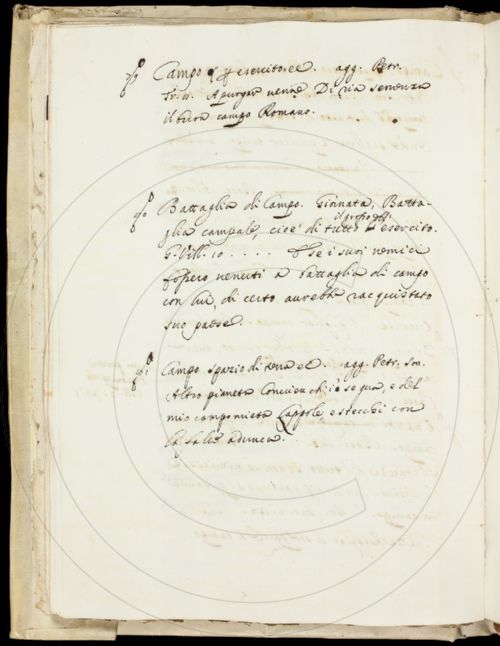 Campo p esercito. ec. agg. Petr.
Tr. A purgar venne Di ria semenza
il buon campo Romano.
Battaglia di Campo. Giornata, Batta-
glia campale, cioè di tutto il grosso dell' esercito.
G. Vill. 10 . . . . . E se i suoi nemici
fossero venuti a battaglia di campo
con lui, di certo avrebbe racquistato
suo paese.
Campo spazio di terra ec. agg. Petr. son.
Altro pianeta Convien ch' io segua, e del
mio campo mieta Lappole, e stecchi con
la falce adunca.